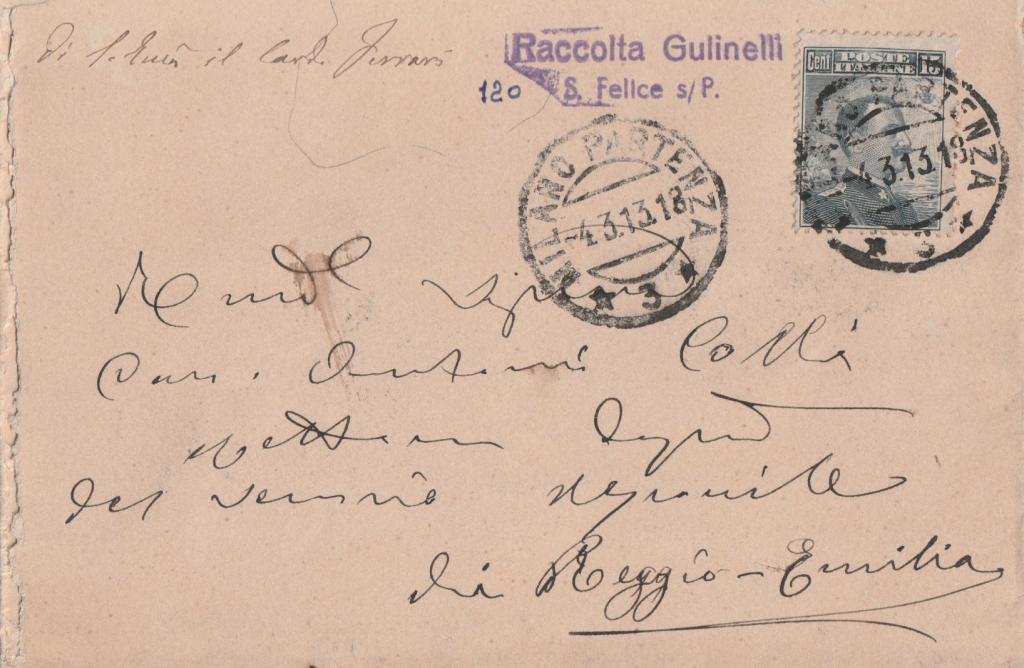 Di S. Em.za il Card. Ferrari
Raccolta Gulinelli
120 S. Felice s/P.
Cent POSTE ITALIANE 15
MILANO PARTENZA
-4.3.13.18
* 3 *
MILANO PARTENZA
-4.3.13.18
* 3 *
Rmd Signore
Can. Antonio Collà
Rettore degmo
del seminario
di Reggio-Emilia